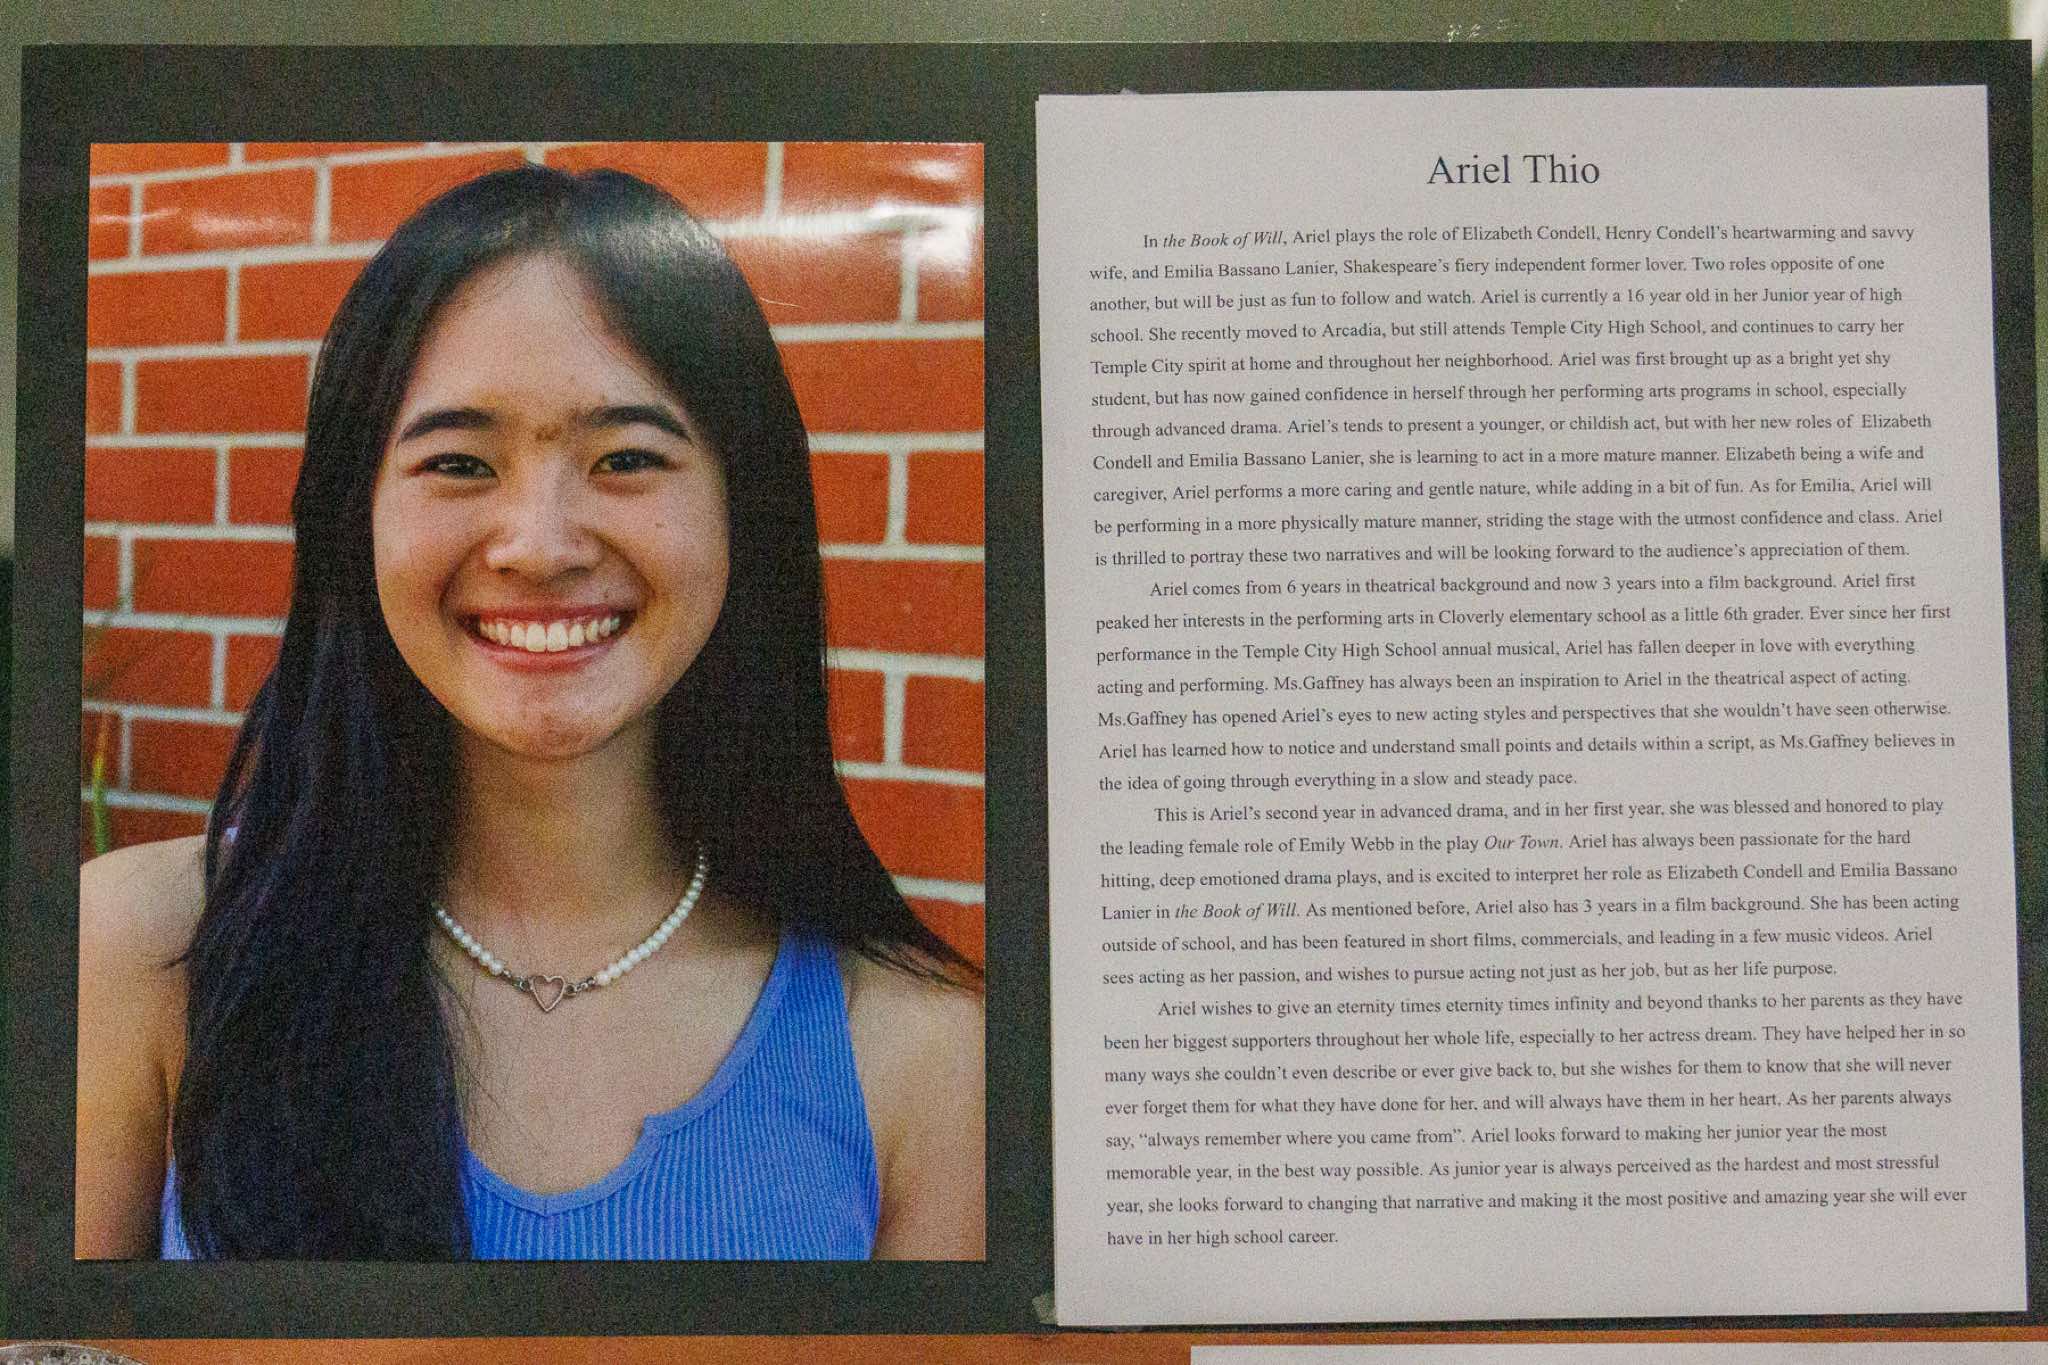 Ariel Thio
In the Book of Will, Ariel plays the role of Elizabeth Condell, Henry Condell's heartwarming and savvy
wife, and Emilia Bassano Lanier, Shakespeare's fiery independent former lover. Two roles opposite of one
another, but will be just as fun to follow and watch. Ariel is currently a 16 year old in her Junior year of high
school. She recently moved to Arcadia, but still attends Temple City High School, and continues to carry her
Temple City spirit at home and throughout her neighborhood. Ariel was first brought up as a bright yet shy
student, but has now gained confidence in herself through her performing arts programs in school, especially
through advanced drama. Ariel's tends to present a younger, or childish act, but with her new roles of Elizabeth
Condell and Emilia Bassano Lanier, she is learning to act in a more mature manner. Elizabeth being a wife and
caregiver, Ariel performs a more caring and gentle nature, while adding in a bit of fun. As for Emilia, Ariel will
be performing in a more physically mature manner, striding the stage with the utmost confidence and class. Ariel
is thrilled to portray these two narratives and will be looking forward to the audience's appreciation of them.
Ariel comes from 6 years in theatrical background and now 3 years into a film background. Ariel first
peaked her interests in the performing arts in Cloverly elementary school as a little 6th grader. Ever since her first
performance in the Temple City High School annual musical, Ariel has fallen deeper in love with everything
acting and performing. Ms.Gaffney has always been an inspiration to Ariel in the theatrical aspect of acting.
Ms.Gaffney has opened Ariel's eyes to new acting styles and perspectives that she wouldn't have seen otherwise.
Ariel has learned how to notice and understand small points and details within a script, as Ms.Gaffney believes in
the idea of going through everything in a slow and steady pace.
This is Ariel's second year in advanced drama, and in her first year, she was blessed and honored to play
the leading female role of Emily Webb in the play Our Town. Ariel has always been passionate for the hard
hitting, deep emotioned drama plays, and is excited to interpret her role as Elizabeth Condell and Emilia Bassano
Lanier in the Book of Will. As mentioned before, Ariel also has 3 years in a film background. She has been acting
outside of school, and has been featured in short films, commercials, and leading in a few music videos. Ariel
sees acting as her passion, and wishes to pursue acting not just as her job, but as her life purpose.
Ariel wishes to give an eternity times eternity times infinity and beyond thanks to her parents as they have
been her biggest supporters throughout her whole life, especially to her actress dream. They have helped her in so
many ways she couldn't even describe or ever give back to, but she wishes for them to know that she will never
ever forget them for what they have done for her, and will always have them in her heart. As her parents always
say, “always remember where you came from”. Ariel looks forward to making her junior year the most
memorable year, in the best way possible. As junior year is always perceived as the hardest and most stressful
year, she looks forward to changing that narrative and making it the most positive and amazing year she will ever
have in her high school career.